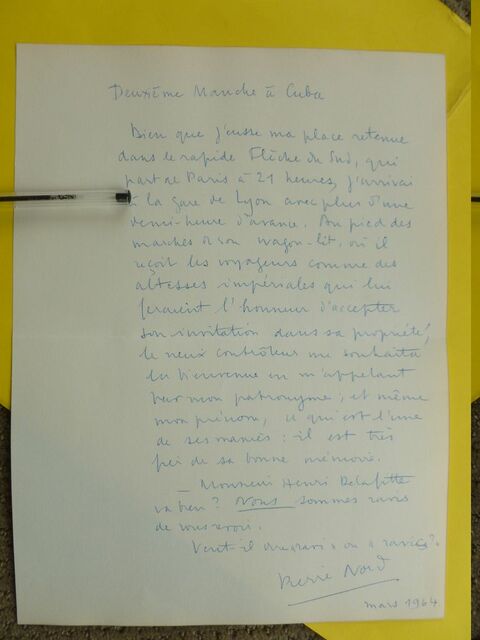 Deuxième Manche à Cuba
Bien que j'eusse ma place retenue
dans le rapide Flèche du Sud, qui
part de Paris à 21 heures, j'arrivai
à la gare de Lyon avec plus d'une
demi-heure d'avance. Au pied des
marches de son wagon-lit, où il
reçoit les voyageurs comme des
altesses impériales qui lui
feraient l'honneur d'accepter
son invitation dans sa propriété,
le vieux contrôleur me souhaita
la bienvenue en m'appelant
par mon patronyme, et même
mon prénom, ce qui est l'une
de ses manies : il est très
fier de sa bonne mémoire.
— Monsieur Henri Delafitte
va bien ? Nous sommes ravis
de vous revoir.
Veut-il dire ravis ou
Pierre Nord
mars 1964